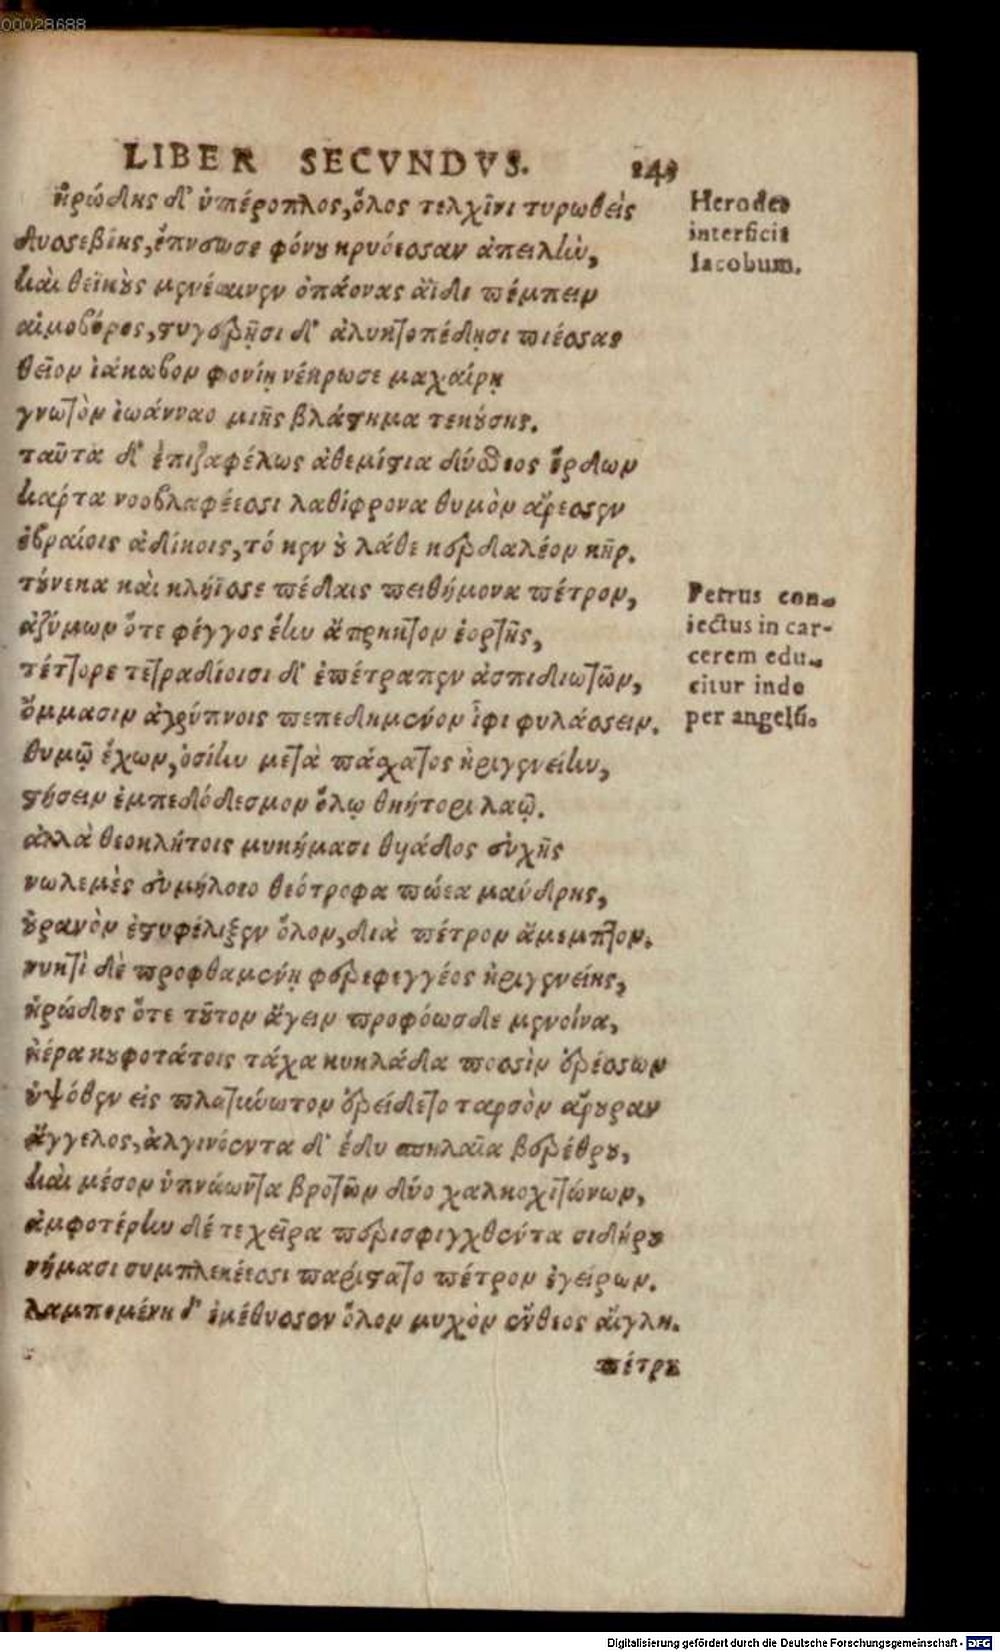 00028688
LIBER SECVNDVS. 243
ἡρώδης δ' ὑπέροπλος, ὅλος τελχῖνι τυρωθεὶς
Herodes
δυσσεβίης, ἔπνευσε φόνου κρυόεσσαν ἀπειλὴν,
interficit
καὶ θεϊκοὺς μενέαινεν ὀπάονας ἄϊδι πέμπειν
Iacobum.
αἱμοβόρος, στυγερῇσι δ' ἀλυκτοπέδῃσι πιέσσας
θεῖον ἰάκωβον φονίῃ νέκρωσε μαχαίρῃ
γνωτὸν ἰωάνναο μιῆς βλάστημα τεκούσης.
ταῦτα δ' ἐπιζαφέλως ἀθεμίστια δύσθεος ἔρδων
κάρτα νοοβλαφέεσσι λαθίφρονα θυμὸν ἄρεσσεν
ἑβραίοις ἀδίκοις, τό κεν οὐ λάθε κερδαλέον κῆρ.
τούνεκα καὶ κλήϊσε πέδαις πειθήμονα πέτρον,
Petrus con-
ἀζύμων ὅτε φέγγος ἔην ἄπρηκτον ἑορτῆς,
iectus in car-
τέτρασι τετραδίοισι δ' ἐπέτραπεν ἀσπιδιωτῶν,
cerem edu-
citur inde
ὄμμασιν ἀγρύπνοις πεπεδημένον ἶφι φυλάσσειν.
per angelũ.
θυμῷ ἔχων, ὁσίην μετὰ πάσχατος ἠριγενείην,
στήσειν ἐμπεδόδεσμον ὅλῳ θηήτορι λαῷ.
ἀλλὰ θεοκλήτοις μυκήμασι θυάδος εὐχῆς
νωλεμὲς εὐμήλοιο θεότροφα πώεα μάνδρης,
οὐρανὸν ἐστυφέλιξεν ὅλον, διὰ πέτρον ἄμεμπτον.
νυκτὶ δὲ προφθαμένῃ φερεφεγγέος ἠριγενείης,
ἡρώδης ὅτε τοῦτον ἄγειν προφόωσδε μενοίνα,
ἠέρα κουφοτάτοις τάχα κυκλάδια ποσσὶν ἐρέσσων
ὑψόθεν εἰς πλατύνωτον ἐρείδετο ταρσὸν ἄρουραν
ἄγγελος, ἀλγινόεντα δ' ἔδυ πυκλαῖα βερέθρου,
καὶ μέσον ὑπνώωντα βροτῶν δύο χαλκοχιτώνων,
ἀμφοτέρην δέ τε χεῖρα περισφιγχθέντα σιδήρου
νήμασι συμπλεκέεσσι παρίστατο πέτρον ἐγείρων.
λαμπομένη δ' ἐμέθυσσεν ὅλον μυχὸν ἔνθεος αἴγλη.
πέτρου
Digitalisierung gefördert durch die Deutsche Forschungsgemeinschaft - DFG